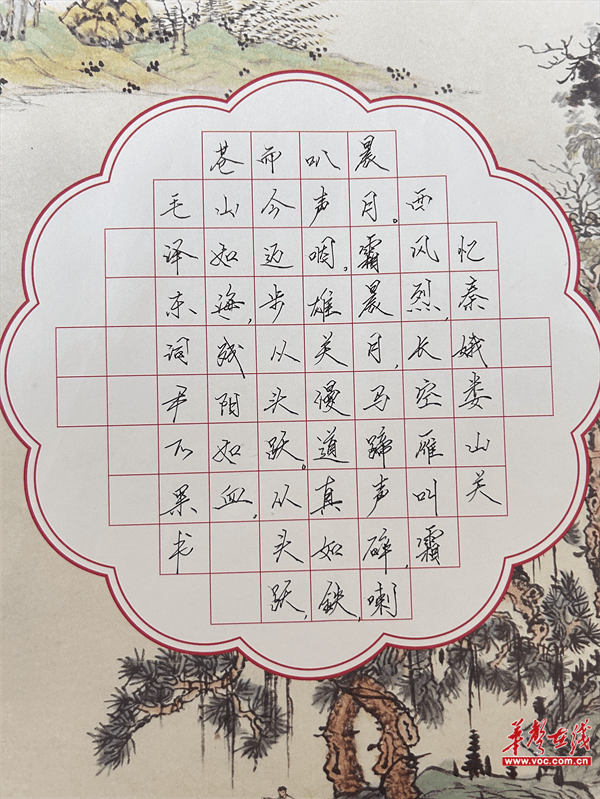 忆秦娥娄山关
西风烈，长空雁叫霜
晨月。霜晨月，马蹄声碎，喇
叭声咽，雄关漫道真如铁，
而今迈步从头跃。从头跃，
苍山如海，残阳如血，
毛泽东词尹果书
华声在线
www.voc.com.cn